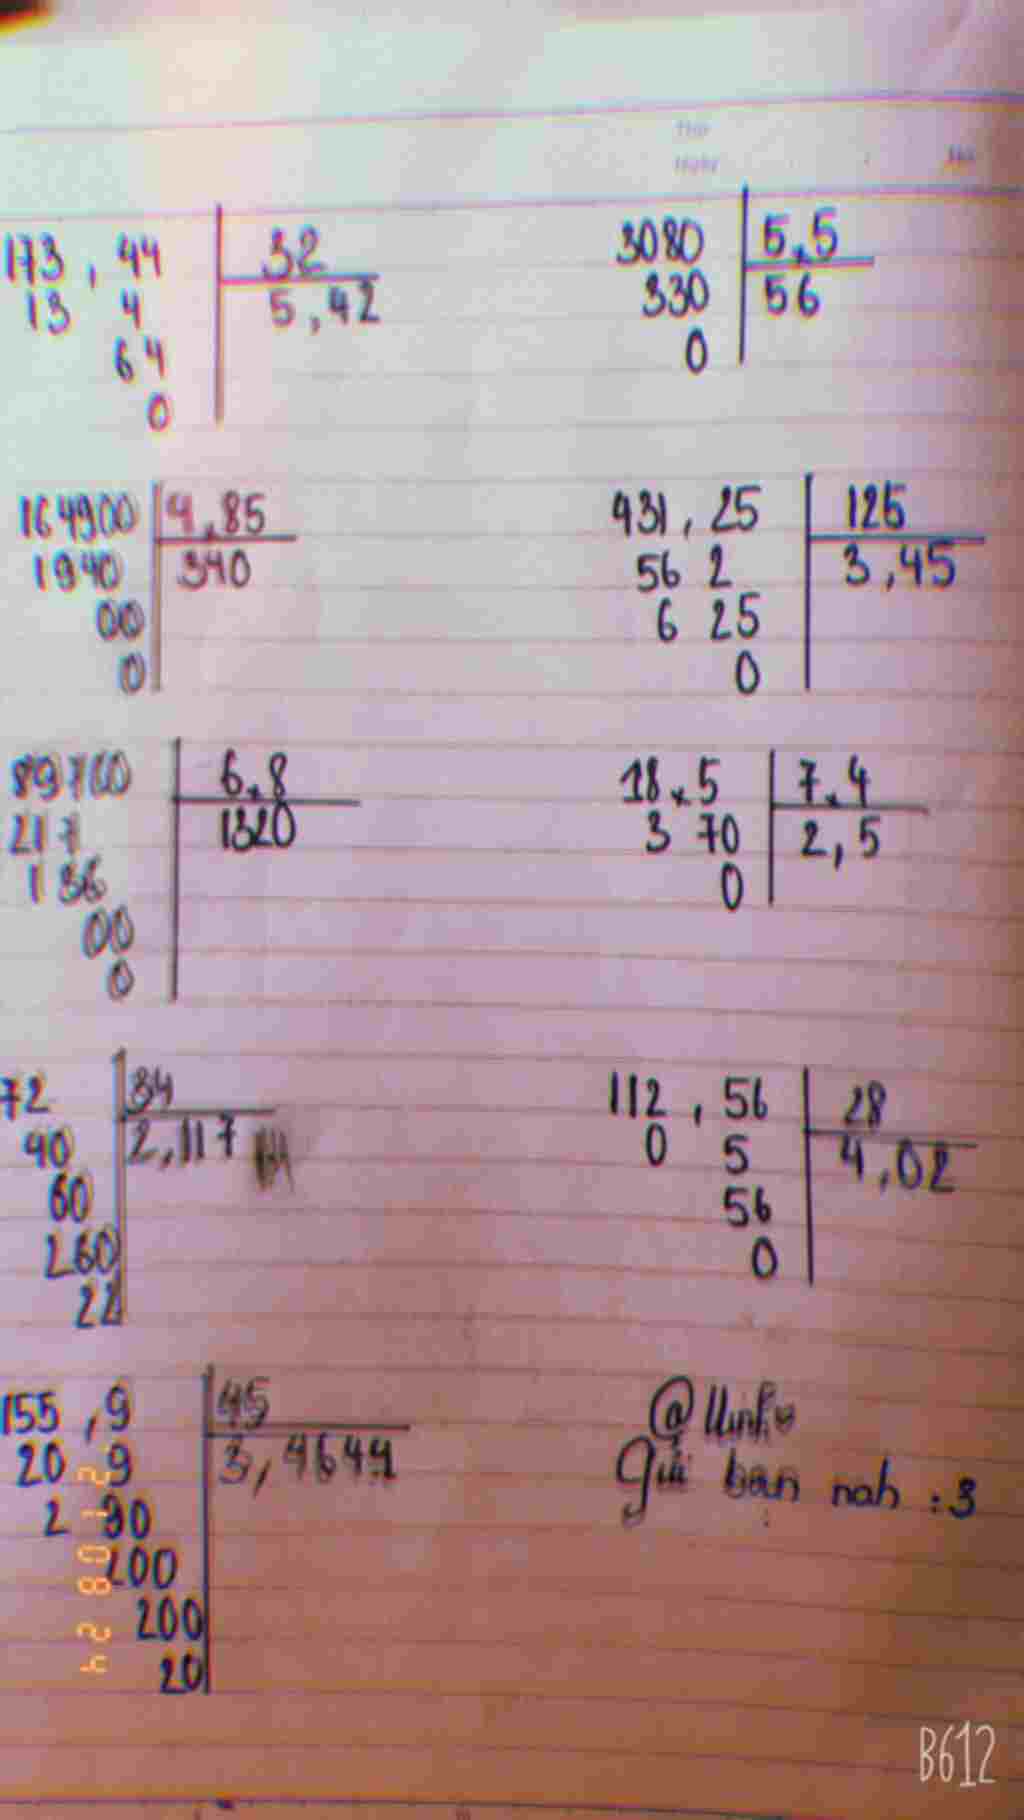 173,44 32
13 4 5,42
64
0
3080 5,5
330 56
0
164900 4,85
1940 340
00
0
431,25 125
56 2 3,45
6 25
0
89760 6,8
217 1320
136
00
0
18,5 7,4
3 70 2,5
0
72 34
40 2,117
60
260
22
112,56 28
0 5 4,02
56
0
155,9 45
20 9 3,4644
2 90
200
200
20
bạn nah :3
21 08 24
B612